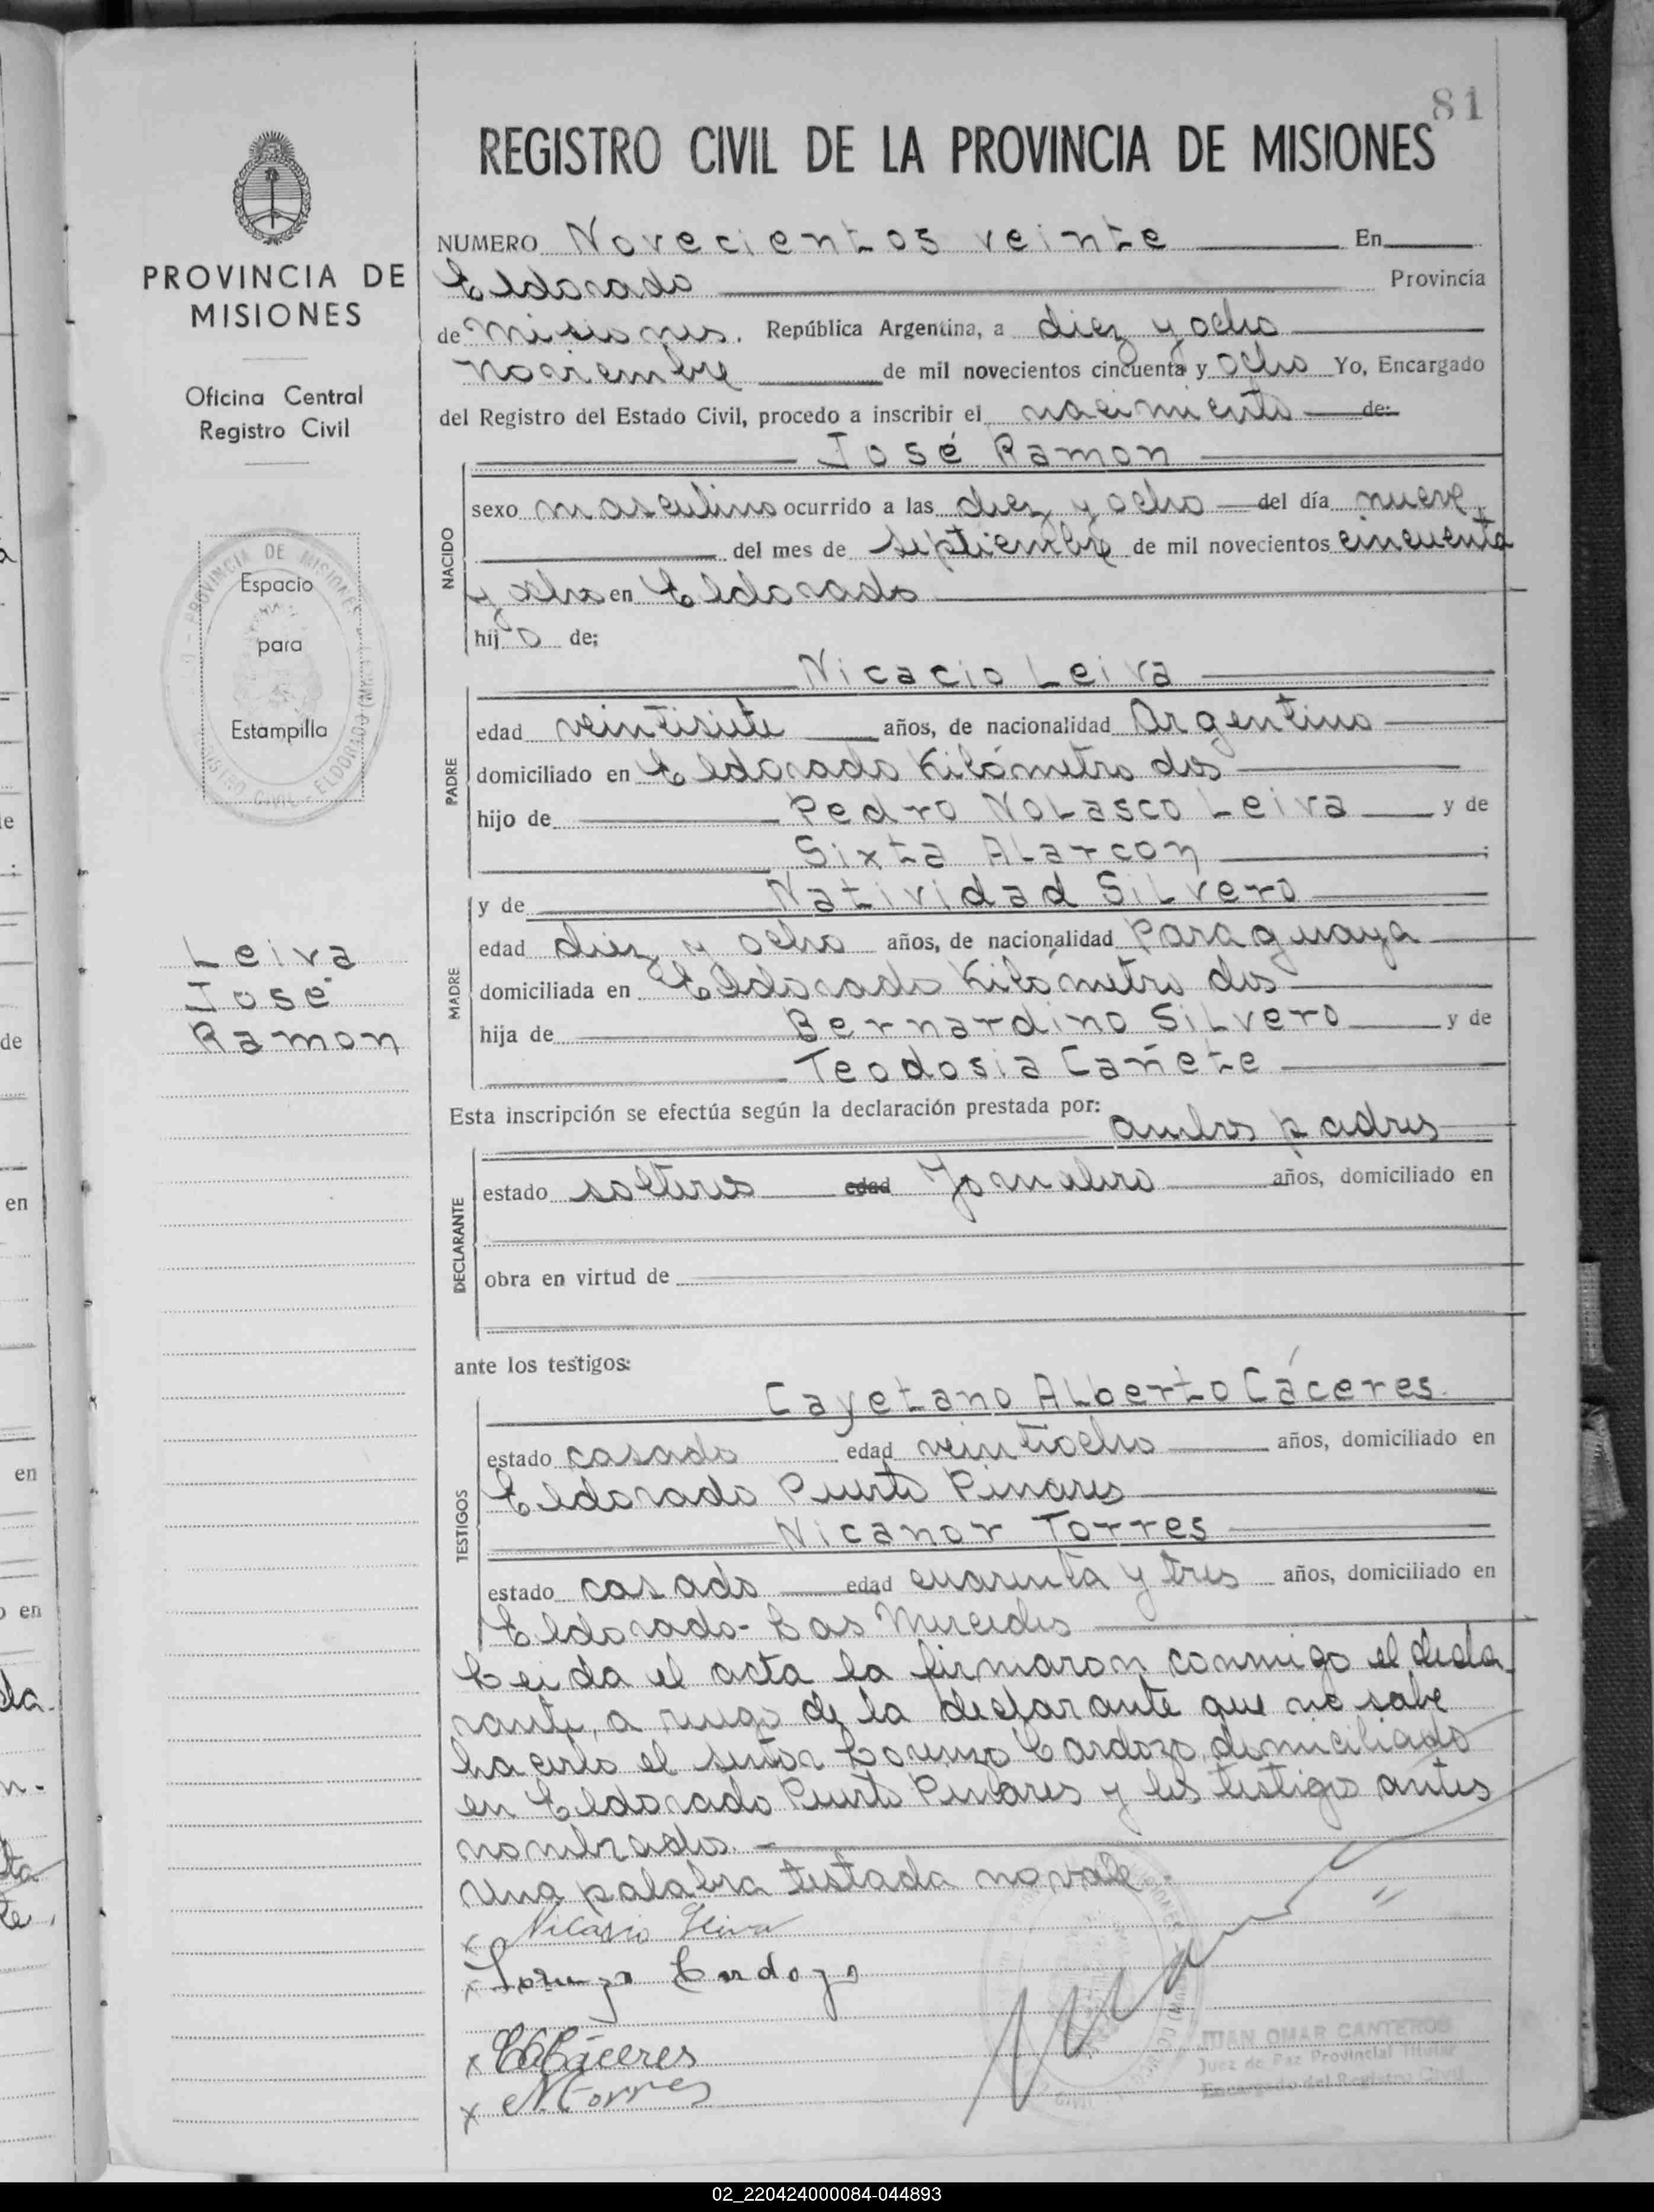 81
REGISTRO CIVIL DE LA PROVINCIA DE MISIONES
PROVINCIA DE
MISIONES
Oficina Central
Registro Civil
Espacio
para
Estampilla
Leiva
José
Ramon
NUMERO Novecientos veinte En
Eldorado Provincia
de Misiones. República Argentina, a diez y ocho
Noviembre de mil novecientos cincuenta y ocho Yo, Encargado
del Registro del Estado Civil, procedo a inscribir el nacimiento de:
José Ramon
NACIDO
sexo masculino ocurrido a las diez y ocho del día nueve
del mes de septiembre de mil novecientos cincuenta
y ocho en Eldorado
hijo de;
Nicacio Leiva
PADRE
edad veintisiete años, de nacionalidad Argentino
domiciliado en Eldorado Kilómetro dos
hijo de Pedro Nolasco Leiva y de
Sixta Alarcon ;
y de Natividad Silvero
MADRE
edad diez y ocho años, de nacionalidad Paraguaya
domiciliada en Eldorado Kilómetro dos
hija de Bernardino Silvero y de
Teodosia Cañete
Esta inscripción se efectúa según la declaración prestada por:
ambos padres
DECLARANTE
estado solteros edad Jornalero años, domiciliado en
obra en virtud de
ante los testigos:
Cayetano Alberto Cáceres
TESTIGOS
estado casado edad veintiocho años, domiciliado en
Eldorado Puerto Pinares
Nicanor Torres
estado casado edad cuarenta y tres años, domiciliado en
Eldorado - Las Mercedes
Leida el acta la firmaron conmigo el decla
rante, a ruego de la declarante que no sabe
hacerlo el señor Lorenzo Cardozo, domiciliado
en Eldorado Puerto Pinares y los testigos antes
nombrados. -
Una palabra testada no vale.
x Nicasio Leiva
x Lorenzo Cardozo
x CACáceres
x N. Torres
JUAN OMAR CANTEROS
Juez de Paz Provincial Titular
Encargado del Registro Civil
02_220424000084-044893